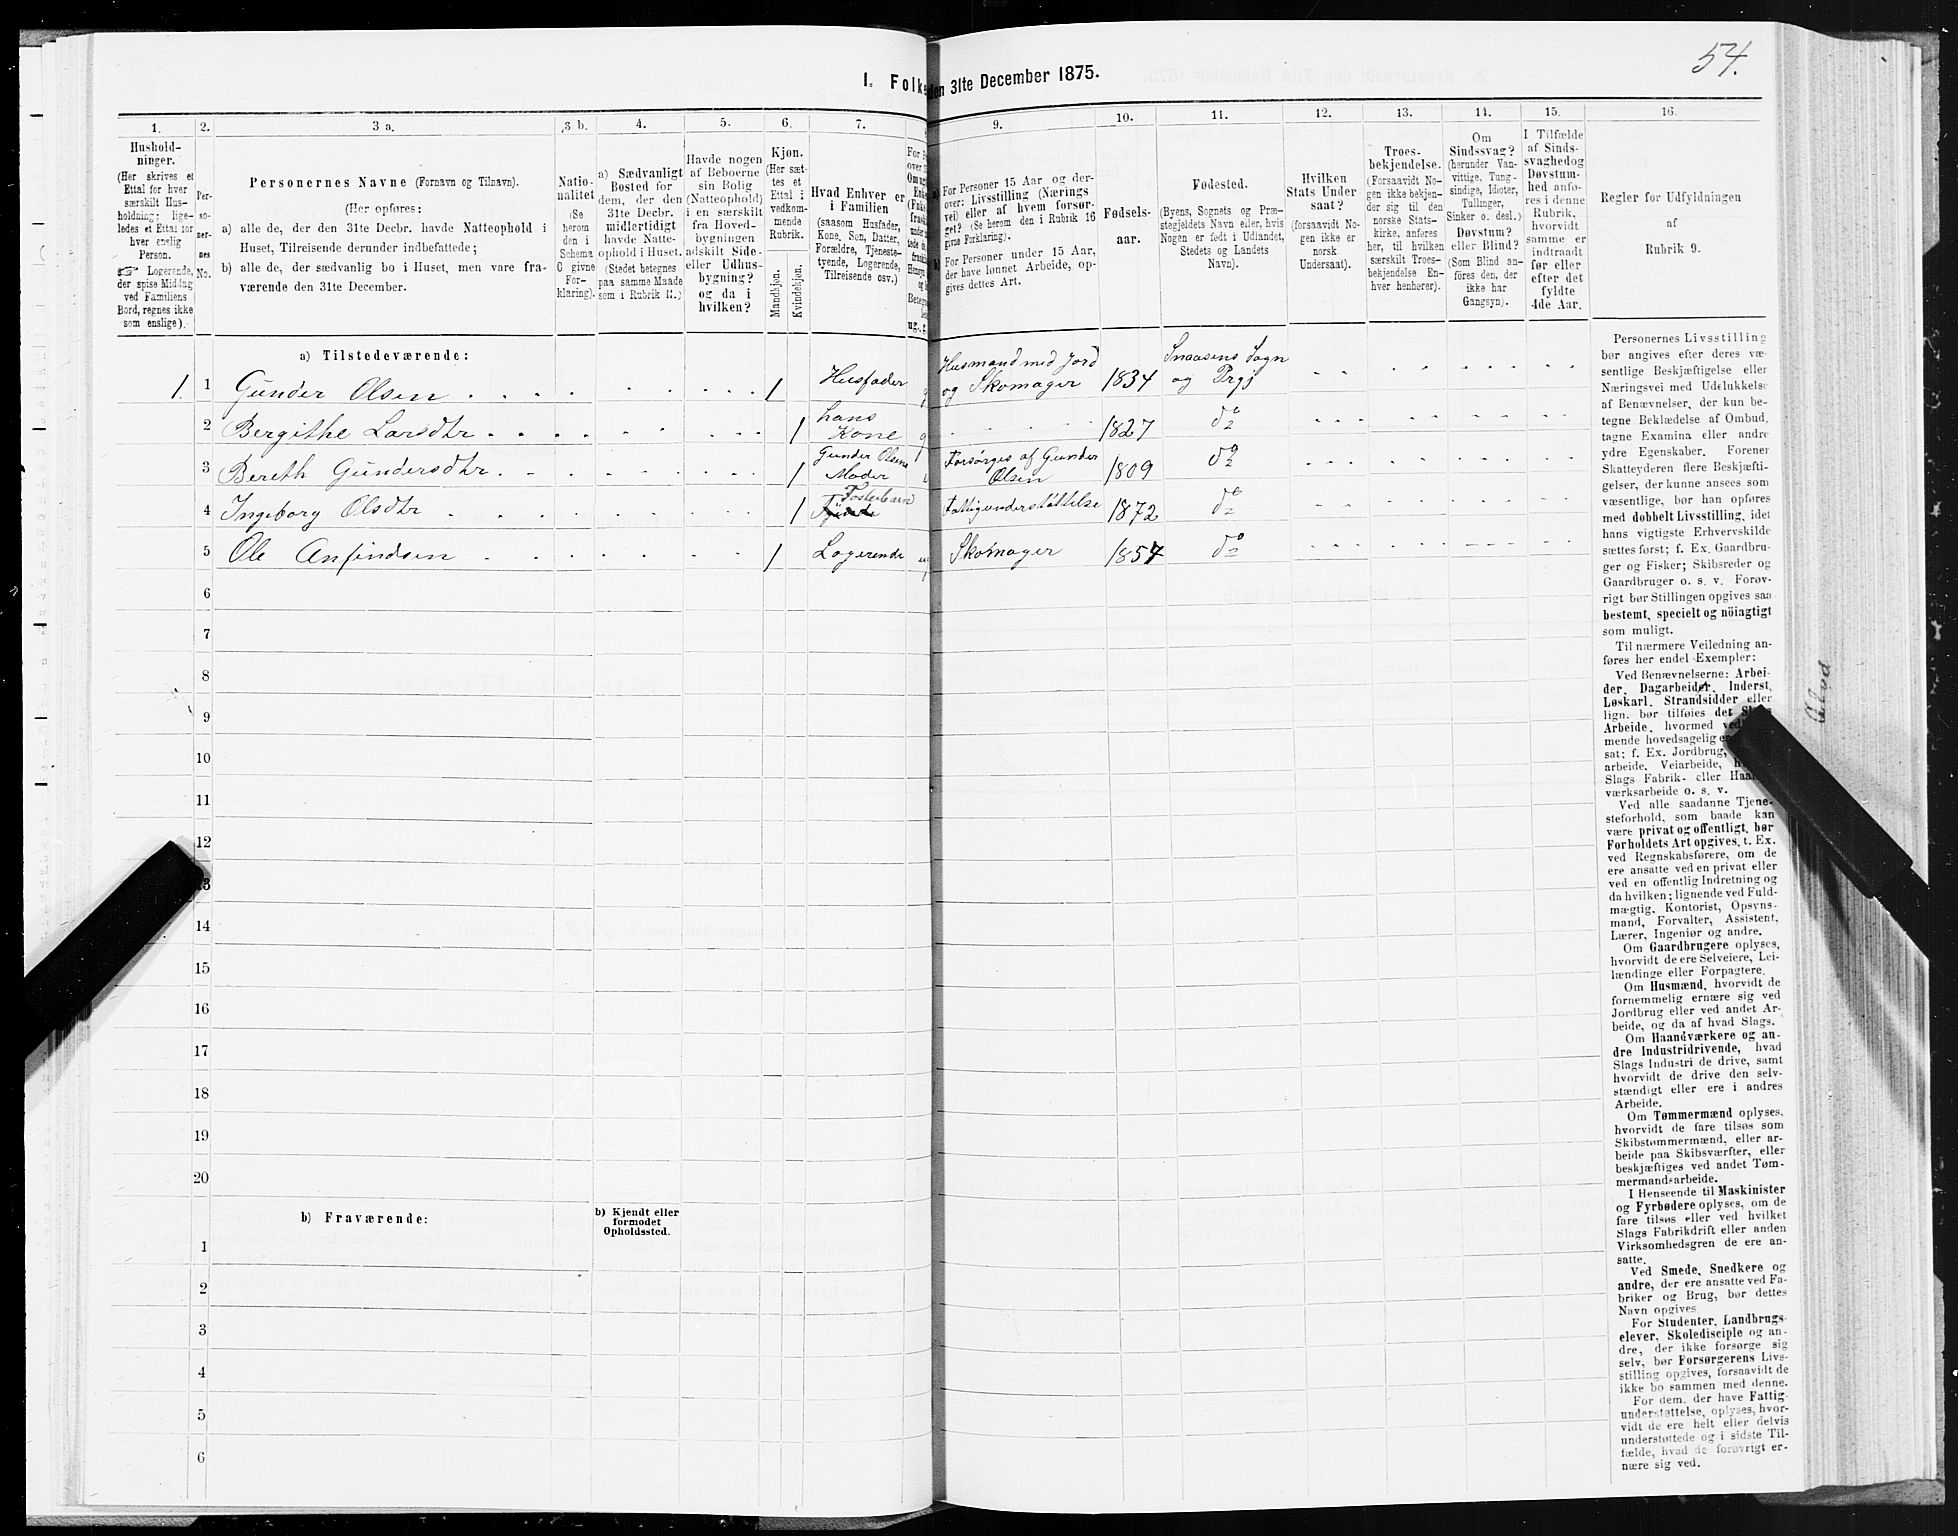 54.
I. Folke
den 31te December 1875.
1. 2. 3 a. 3 b. 4. 5. 6. 7. 9. 10. 11. 12. 13. 14. 15. 16.
Hushold-
ninger.
(Her skrives et
Ettal for hver
særskilt Hus-
holdning; lige-
ledes et Ettal for
hver enelig
Person.
☞ Logerende,
der spise Middag
ved Familiens
Bord, regnes ikke
som enslige).
Per-
so-
ner-
nes
No.
Personernes Navne (Fornavn og Tilnavn).
(Her opføres:
a) alle de, der den 31te Decbr. havde Natteophold i
Huset, Tilreisende derunder indbefattede;
b) alle de, der sædvanlig bo i Huset, men vare fra-
værende den 31te December.
Natio-
nalitet
(Se
herom
den i
Schema
G givne
For-
klaring).
a) Sædvanligt
Bosted for
dem, der den
31te Decbr.
midlertidigt
havde Natte-
ophold i Huset.
(Stedet betegnes
paa samme Maade
som i Rubrik 11.)
Havde nogen
af Beboerne
sin Bolig
(Natteophold)
i en særskilt
fra Hoved-
bygningen
adskilt Side-
eller Udhus-
bygning?
og da i
hvilken?
Kjøn.
(Her sæt-
tes et
Ettal i
vedkom-
mende
Rubrik.
Mandkjøn.
Kvindekjøn.
Hvad Enhver er
i Familien
(saasom Husfader,
Kone, Søn, Datter,
Forældre, Tjeneste-
tyende, Logerende,
Tilreisende osv.)
ug., g.
For Personer 15 Aar og der-
over: Livsstilling (Nærings
vei) eller af hvem forsør-
get? (Se herom den i Rubrik 16
givne Forklaring).
For Personer under 15 Aar,
der have lønnet Arbeide, op-
gives dettes Art.
Fødsels-
aar.
Fødested.
(Byens, Sognets og Præ-
stegjeldets Navn eller, hvis
Nogen er født i Udlandet,
Stedets og Landets
Navn).
Hvilken
Stats Under
saat?
(forsaavidt No-
gen ikke er
norsk
Undersaat).
Troes-
bekjendelse.
(Forsaavidt No-
gen ikke bekjen-
der sig til den
norske Stats-
kirke, anføres
her, til hvilken
særskilt Troes-
bekjendelse En-
hver henhører).
Om
Sindssvag?
(herunder Van-
vittige, Tung-
sindige, Idioter,
Tullinger,
Sinker o. desl.)
Døvstum?
eller Blind?
(Som Blind an-
føres den, der
ikke har
Gangsyn).
I Tilfælde
af Sinds-
svaghed og
Døvstum-
hed anfø-
res i denne
Rubrik,
hvorvidt
samme er
indtraadt
før eller
efter det
fyldte
4de Aar.
Regler for Udfyldningen
af
Rubrik 9.
a) Tilstedeværende:
1. 1 Gunder Olsen 1 Husfader g Husmand med Jord og Skomager 1834 Snaasens Sogn og Prgj
2 Bergithe Larsdtr 1 hans Kone g 1827 do
3 Bereth Gundersdtr 1 Gunder Olsens Moder Forsørges af Gunder Olsen 1809 do
4 Ingeborg Olsdtr 1 Fosterbarn Fattigunderstøttelse 1872 do
5 Ole Anfindsen 1 Logerende Skomager 1857 do
6
7
8
9
10
11
12
13
14
15
16
17
18
19
20
b) Fraværende:
b) Kjendt eller
formodet
Opholdssted.
1
2
3
4
5
6
Personernes Livsstilling
bør angives efter deres væ-
sentlige Beskjæftigelse eller
Næringsvei med Udelukkelse
af Benævnelser, der kun be-
tegne Beklædelse af Ombud,
tagne Examina eller andre
ydre Egenskaber. Forener
Skatteyderen flere Beskjæfti-
gelser, der kunne ansees som
væsentlige, bør han opføres
med dobbelt Livsstilling, idet
hans vigtigste Erhvervskilde
sættes først; f. Ex. Gaardbru-
ger og Fisker; Skibsreder og
Gaardbruger o. s. v. Forøv-
rigt bør Stillingen opgives saa
bestemt, specielt og nöiagtigt
som muligt.
Til nærmere Veiledning an-
føres her endel Exempler:
Ved Benævnelserne: Arbei-
der, Dagarbeider, Inderst,
Løskarl, Strandsidder eller
lign. bør tilføies det Slags
Arbeide, hvormed ved
mende hovedsagelig
sat; f. Ex. Jordbrug,
arbeide, Veiarbeide,
Slags Fabrik- eller Haa
værksarbeide o. s. v.
Ved alle saadanne Tjene-
steforhold, som baade kan
være privat og offentligt, bør
Forholdets Art opgives, t. Ex.
ved Regnskabsførere, om de
ere ansatte ved en privat eller
ved en offentlig Indretning og
da hvilken; lignende ved Fuld-
mægtig, Kontorist, Opsyns-
mand, Forvalter, Assistent,
Lærer, Ingeniør og andre.
Om Gaardbrugere oplyses,
hvorvidt de ere Selveiere, Lei-
lændinge eller Forpagtere.
Om Husmænd, hvorvidt de
fornemmelig ernære sig ved
Jordbrug eller ved andet Ar-
beide, og da af hvad Slags.
Om Haandværkere og an-
dre Industridrivende, hvad
Slags Industri de drive, samt
hvorvidt de drive den selv-
stændigt eller ere i andres
Arbeide.
Om Tømmermænd oplyses,
hvorvidt de fare tilsøs som
Skibstømmermænd, eller ar-
beide paa Skibsværfter, eller
beskjæftiges ved andet Tøm-
mermandsarbeide.
I Henseende til Maskinister
og Fyrbødere oplyses, om de
fare tilsøs eller ved hvilket
Slags Fabrikdrift eller anden
Virksomhedsgren de ere an-
satte.
Ved Smede, Snedkere og
andre, der ere ansatte ved Fa-
briker og Brug, bør dettes
Navn opgives
For Studenter, Landbrugs-
elever, Skoledisciple og an-
dre, der ikke forsørge sig
selv, bør Forsørgerens Livs-
stilling opgives, forsaavidt de
ikke bo sammen med denne.
For dem, der have Fattig-
understøttelse, oplyses, hvor-
vidt de ere helt eller delvis
understøttede og i sidste Til-
fælde, hvad de forøvrigt er-
nære sig ved.